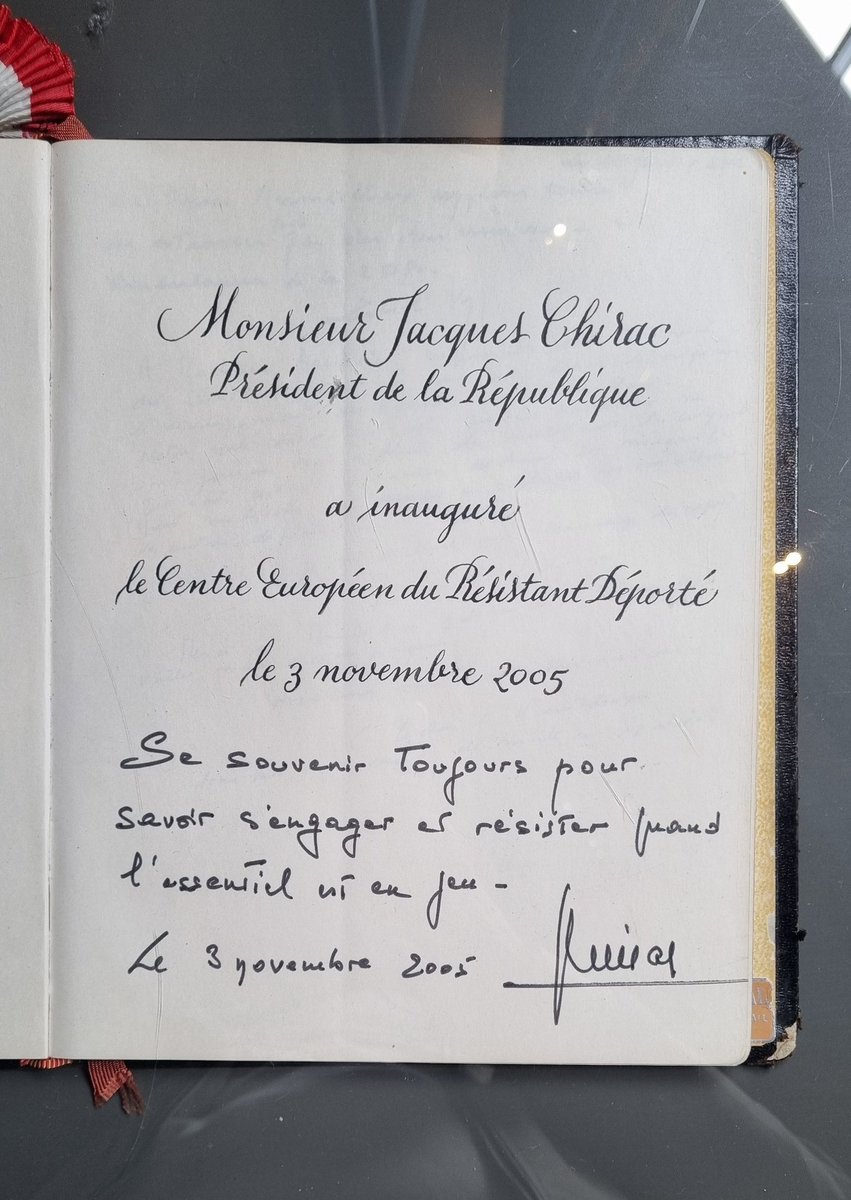 Monsieur Jacques Chirac
Président de la République
a inauguré
le Centre Européen du Résistant Déporté
le 3 novembre 2005
Se souvenir toujours pour
savoir s'engager et résister quand
l'essentiel est en jeu -
Le 3 novembre 2005